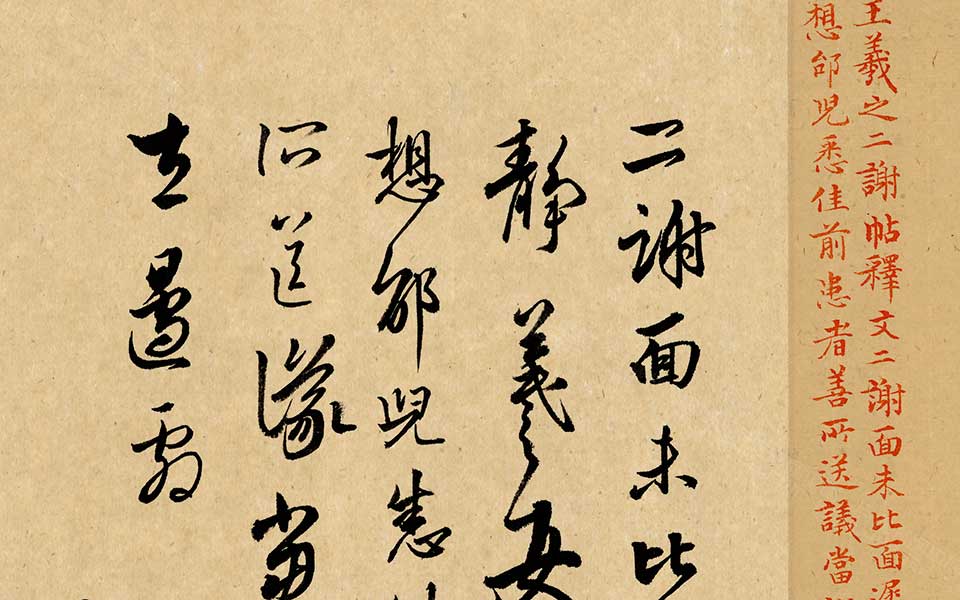 王羲之二謝帖釋文二謝面未比面遲
想邰兒悉佳前患者善所送議當
二謝面未比
靜羲之女
想邰兒悉
所送議當
左邊劇